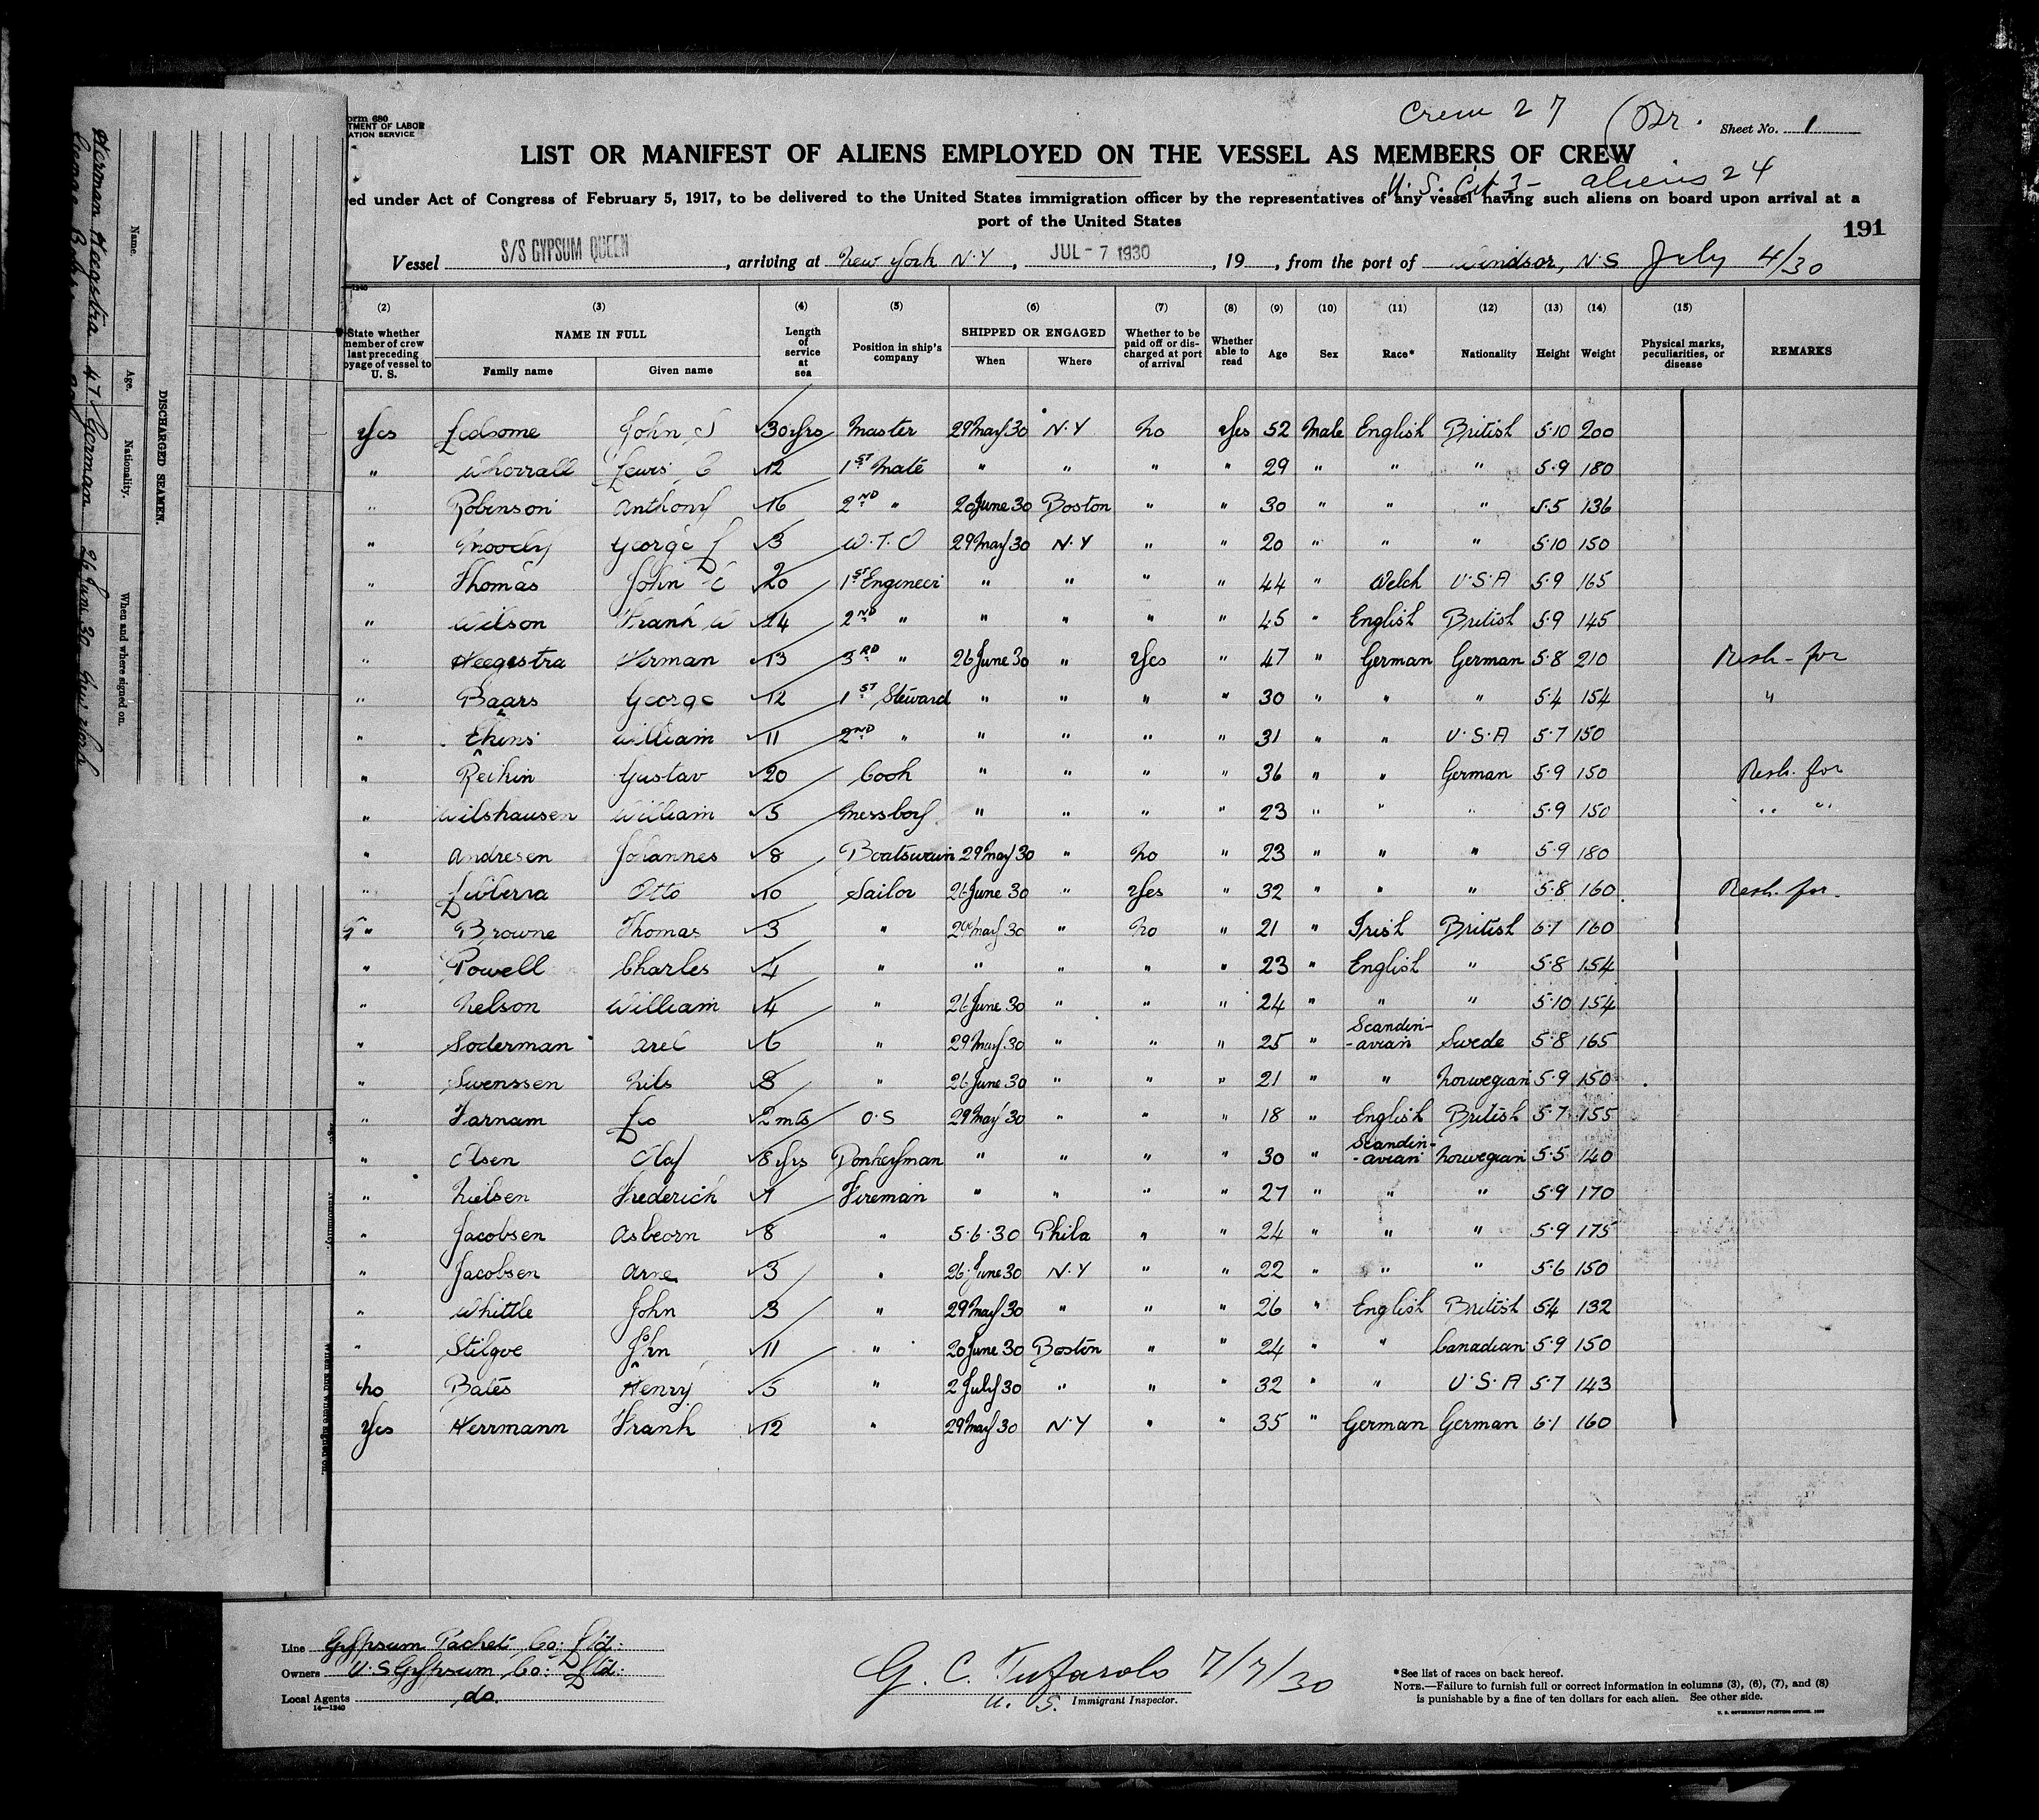 Crew 27 (Br.
Sheet No. 1
Form 680
TMENT OF LABOR
ATION SERVICE
LIST OR MANIFEST OF ALIENS EMPLOYED ON THE VESSEL AS MEMBERS OF CREW
U.S. Cit 3 - aliens 24
ed under Act of Congress of February 5, 1917, to be delivered to the United States immigration officer by the representatives of any vessel having such aliens on board upon arrival at a
port of the United States
191
Vessel S/S GYPSUM QUEEN, arriving at New York N.Y, JUL - 7 1930, 19, from the port of Windsor, N.S July 4/30
(2) (3) (4) (5) (6) (7) (8) (9) (10) (11) (12) (13) (14) (15)
State whether member of crew last preceding oyage of vessel to U. S. NAME IN FULL Family name Given name Length of service at sea Position in ship's company SHIPPED OR ENGAGED When Where Whether to be paid off or discharged at port of arrival Whether able to read Age Sex Race* Nationality Height Weight Physical marks, peculiarities, or disease REMARKS
Yes Ledsome John S 30 yrs Master 29 May 30 N.Y No Yes 52 Male English British 5.10 200
" Whorrall Lewis C 12 1st Mate " " " " 29 " " " 5.9 180
" Robinson Anthony 16 2ND " 20 June 30 Boston " " 30 " " " 5.5 136
" Moody George L 3 W.T.O 29 May 30 N.Y " " 20 " " " 5.10 150
" Thomas John E 20 1st Engineer " " " " 44 " Welch U.S.A 5.9 165
" Wilson Frank W 24 2ND " " " " " 45 " English British 5.9 145
" Heegstra Herman 13 3RD " 26 June 30 " Yes " 47 " German German 5.8 210 Resh - for
" Baars George 12 1ST Steward " " " " 30 " " " 5.4 154 "
" Ekins William 11 2ND " " " " " 31 " " U.S.A 5.7 150
" Reikin Gustav 20 Cook " " " " 36 " " German 5.9 150 Resh. for
" Wilshausen William 5 Messboy " " " " 23 " " " 5.9 150 " "
" Andresen Johannes 8 Boatswain 29 May 30 " No " 23 " " " 5.9 180
" Otto 10 Sailor 26 June 30 " Yes " 32 " " " 5.8 160 Resh. for
" Browne Thomas 3 " 29 May 30 " No " 21 " Irish British 6.1 160
" Powell Charles 4 " " " " " 23 " English " 5.8 154
" Nelson William 4 " 26 June 30 " " " 24 " " " 5.10 154
" Soderman Axel 6 " 29 May 30 " " " 25 " Scandin-avian Swede 5.8 165
" Swenssen Nils 8 " 26 June 30 " " " 21 " " Norwegian 5.9 150
" Farnam Leo 2 mts O.S 29 May 30 " " " 18 " English British 5.7 155
" Olsen Olaf 8 yrs Donkeyman " " " " 30 " Scandin-avian Norwegian 5.5 140
" Nielsen Frederick 7 Fireman " " " " 27 " " " 5.9 170
" Jacobsen Asbeorn 8 " 5.6.30 Phila " " 24 " " " 5.9 175
" Jacobsen Arne 3 " 26 June 30 N.Y " " 22 " " " 5.6 150
" Whittle John 3 " 29 May 30 " " " 26 " English British 5.4 132
" Stilgoe John 11 " 20 June 30 Boston " " 24 " " Canadian 5.9 150
No Bates Henry 5 " 2 July 30 " " " 32 " " U.S.A 5.7 143
Yes Herrmann Frank 12 " 29 May 30 N.Y " " 35 " German German 6.1 160
Line Gypsum Packet Co: Ltd:
Owners U.S Gypsum Co: Ltd:
Local Agents do.
14—1240
G. C. Tufarolo 7/7/30
U. S. Immigrant Inspector.
*See list of races on back hereof.
NOTE.—Failure to furnish full or correct information in columns (3), (6), (7), and (8)
is punishable by a fine of ten dollars for each alien. See other side.
U. S. GOVERNMENT PRINTING OFFICE
DISCHARGED SEAMEN.
Name. Age. Nationality. When and where signed on.
Herman Heegstra 47 German 26 June 30 New York